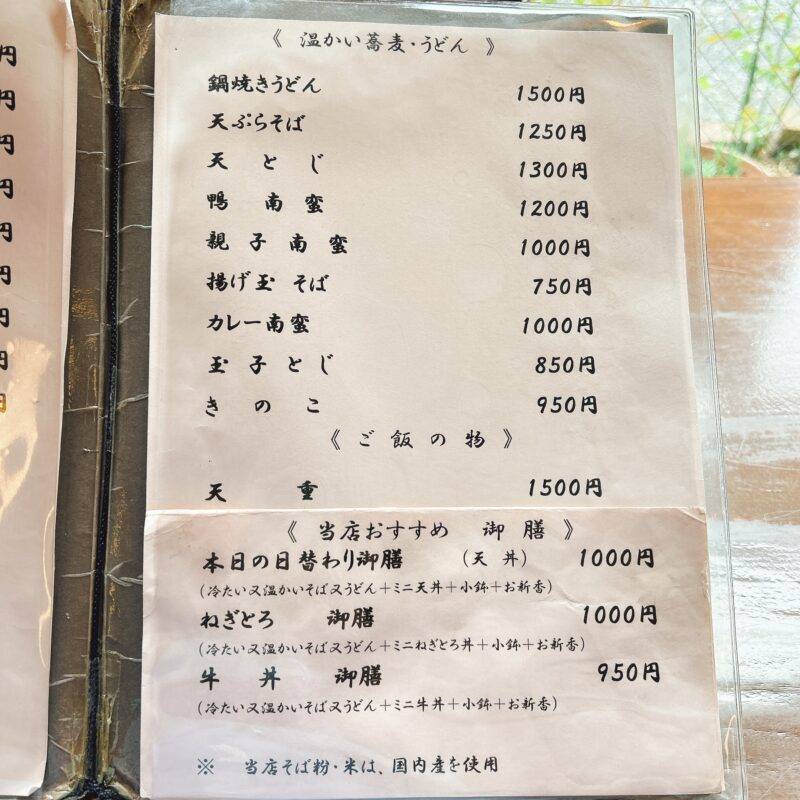 《 温かい蕎麦・うどん 》
鍋焼きうどん 1500円
天ぷらそば 1250円
天とじ 1300円
鴨南蛮 1200円
親子南蛮 1000円
揚げ玉そば 750円
カレー南蛮 1000円
玉子とじ 850円
きのこ 950円
《 ご飯の物 》
天重 1500円
《 当店おすすめ 御膳 》
本日の日替わり御膳 (天丼) 1000円
(冷たい又温かいそば又うどん+ミニ天丼+小鉢+お新香)
ねぎとろ 御膳 1000円
(冷たい又温かいそば又うどん+ミニねぎとろ丼+小鉢+お新香)
牛丼 御膳 950円
(冷たい又温かいそば又うどん+ミニ牛丼+小鉢+お新香)
※ 当店そば粉・米は、国内産を使用
円
円
円
円
円
円
円
円
円